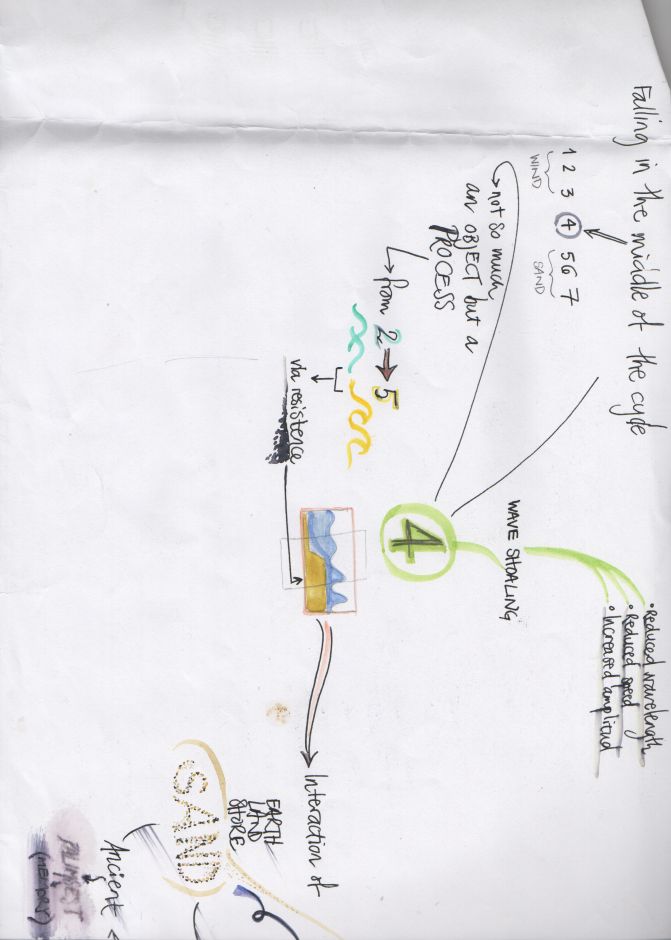 Falling in the middle of the cycle
1 2 3 4 5 6 7
WIND
SAND
not so much
an OBJECT but a
PROCESS
from 2 → 5
via resistence
4
WAVE SHOALING
• Reduced wavelength
• Reduced speed
• Increased amplitud
Interaction of
EARTH
LAND
SHORE
SAND
Ancient
(MEMORY)